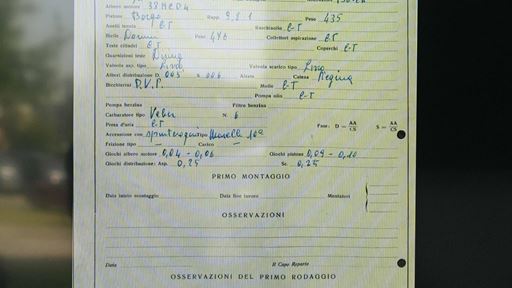 Albero motore 38MED4
Pistone Borgo Rapp. 9.8:1 Peso 435
Anelli tenuta E-T Raschiaolio E-T
Bielle Peso 446 Collettori aspirazione E-T
Teste cilindri E-T Coperchi E-T
Guarnizioni teste
Valvola asp. tipo Livia Valvola scarico tipo Livia
Alberi distribuzione D 005 S 006 Alzata Catena Regina
Bicchierini D.V.P. Molle E-T
Pompa olio E-T
Pompa benzina Filtro benzina
Carburatore tipo Veber N. 6
Presa d'aria E-T
Accensione con spinterogeni tipo Marelli
Fase: D = AA/CS S = AA/CS
Frizione tipo — Carico —
Giochi albero motore 0,04 - 0,06 Giochi pistone 0,09 - 0,10
Giochi distribuzione: Asp. 0,25 Sc. 0,25
PRIMO MONTAGGIO
Data inizio montaggio Data fine lavoro Montatori
OSSERVAZIONI
Data Il Capo Reparto
OSSERVAZIONI DEL PRIMO RODAGGIO